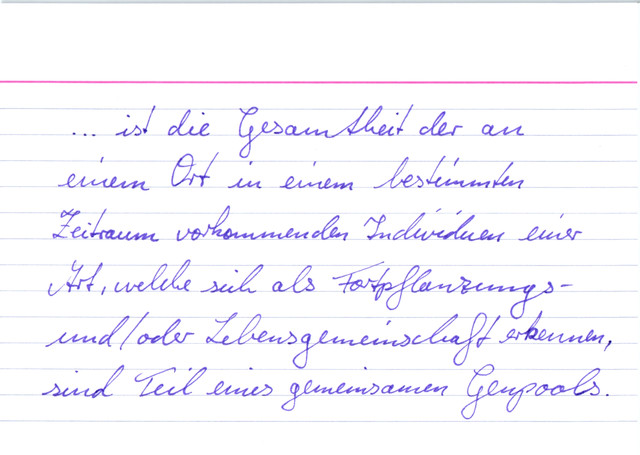 ... ist die Gesamtheit der an
einem Ort in einem bestimmten
Zeitraum vorkommenden Individuen einer
Art, welche sich als Fortpflanzungs-
und/oder Lebensgemeinschaft erkennen,
sind Teil eines gemeinsamen Genpools.